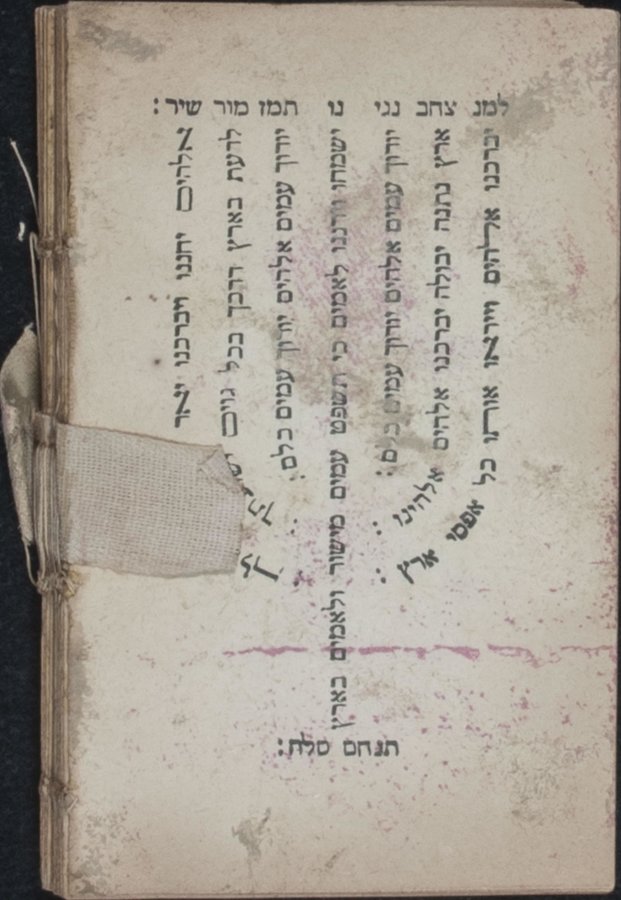 למנ צחב נגי נו תמז מור שיר:
אלהים יחננו ויברכנו יאר
לדעת בארץ דרכך בכל גוים
יודוך עמים אלהים יודוך עמים כלם:
ישמחו וירננו לאמים כי תשפט עמים מישור ולאמים בארץ
תנחם סלה:
יודוך עמים אלהים יודוך עמים כלם:
ארץ נתנה יבולה יברכנו אלהים אלהינו:
יברכנו אלהים וייראו אותו כל אפסי ארץ: